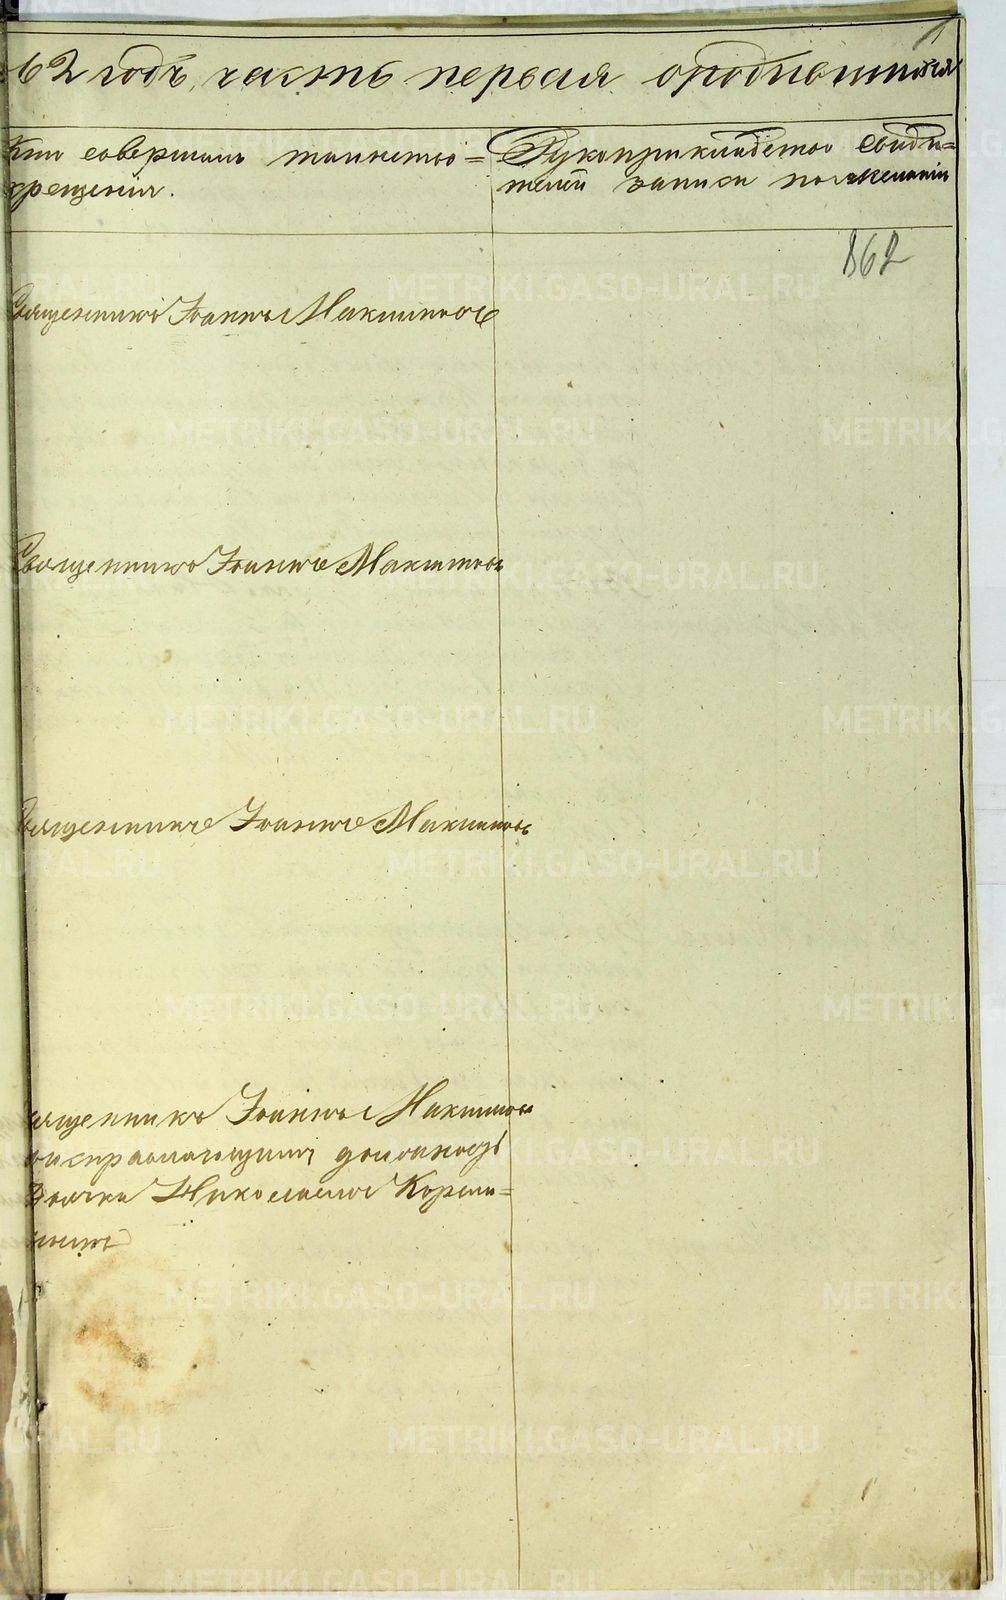 62 годъ, часть первая о родившихся
Кто совершалъ таинство
крещенія.
Рукоприкладство свидѣ=
телей записи по желанію
862
Священникъ Іоаннъ Максимовъ
Священникъ Іоаннъ Максимовъ
Священникъ Іоаннъ Максимовъ
ященникъ Іоаннъ Максимовъ
исправляющимъ должность
дьячка Николаемъ
METRIKI.GASO-URAL.RU